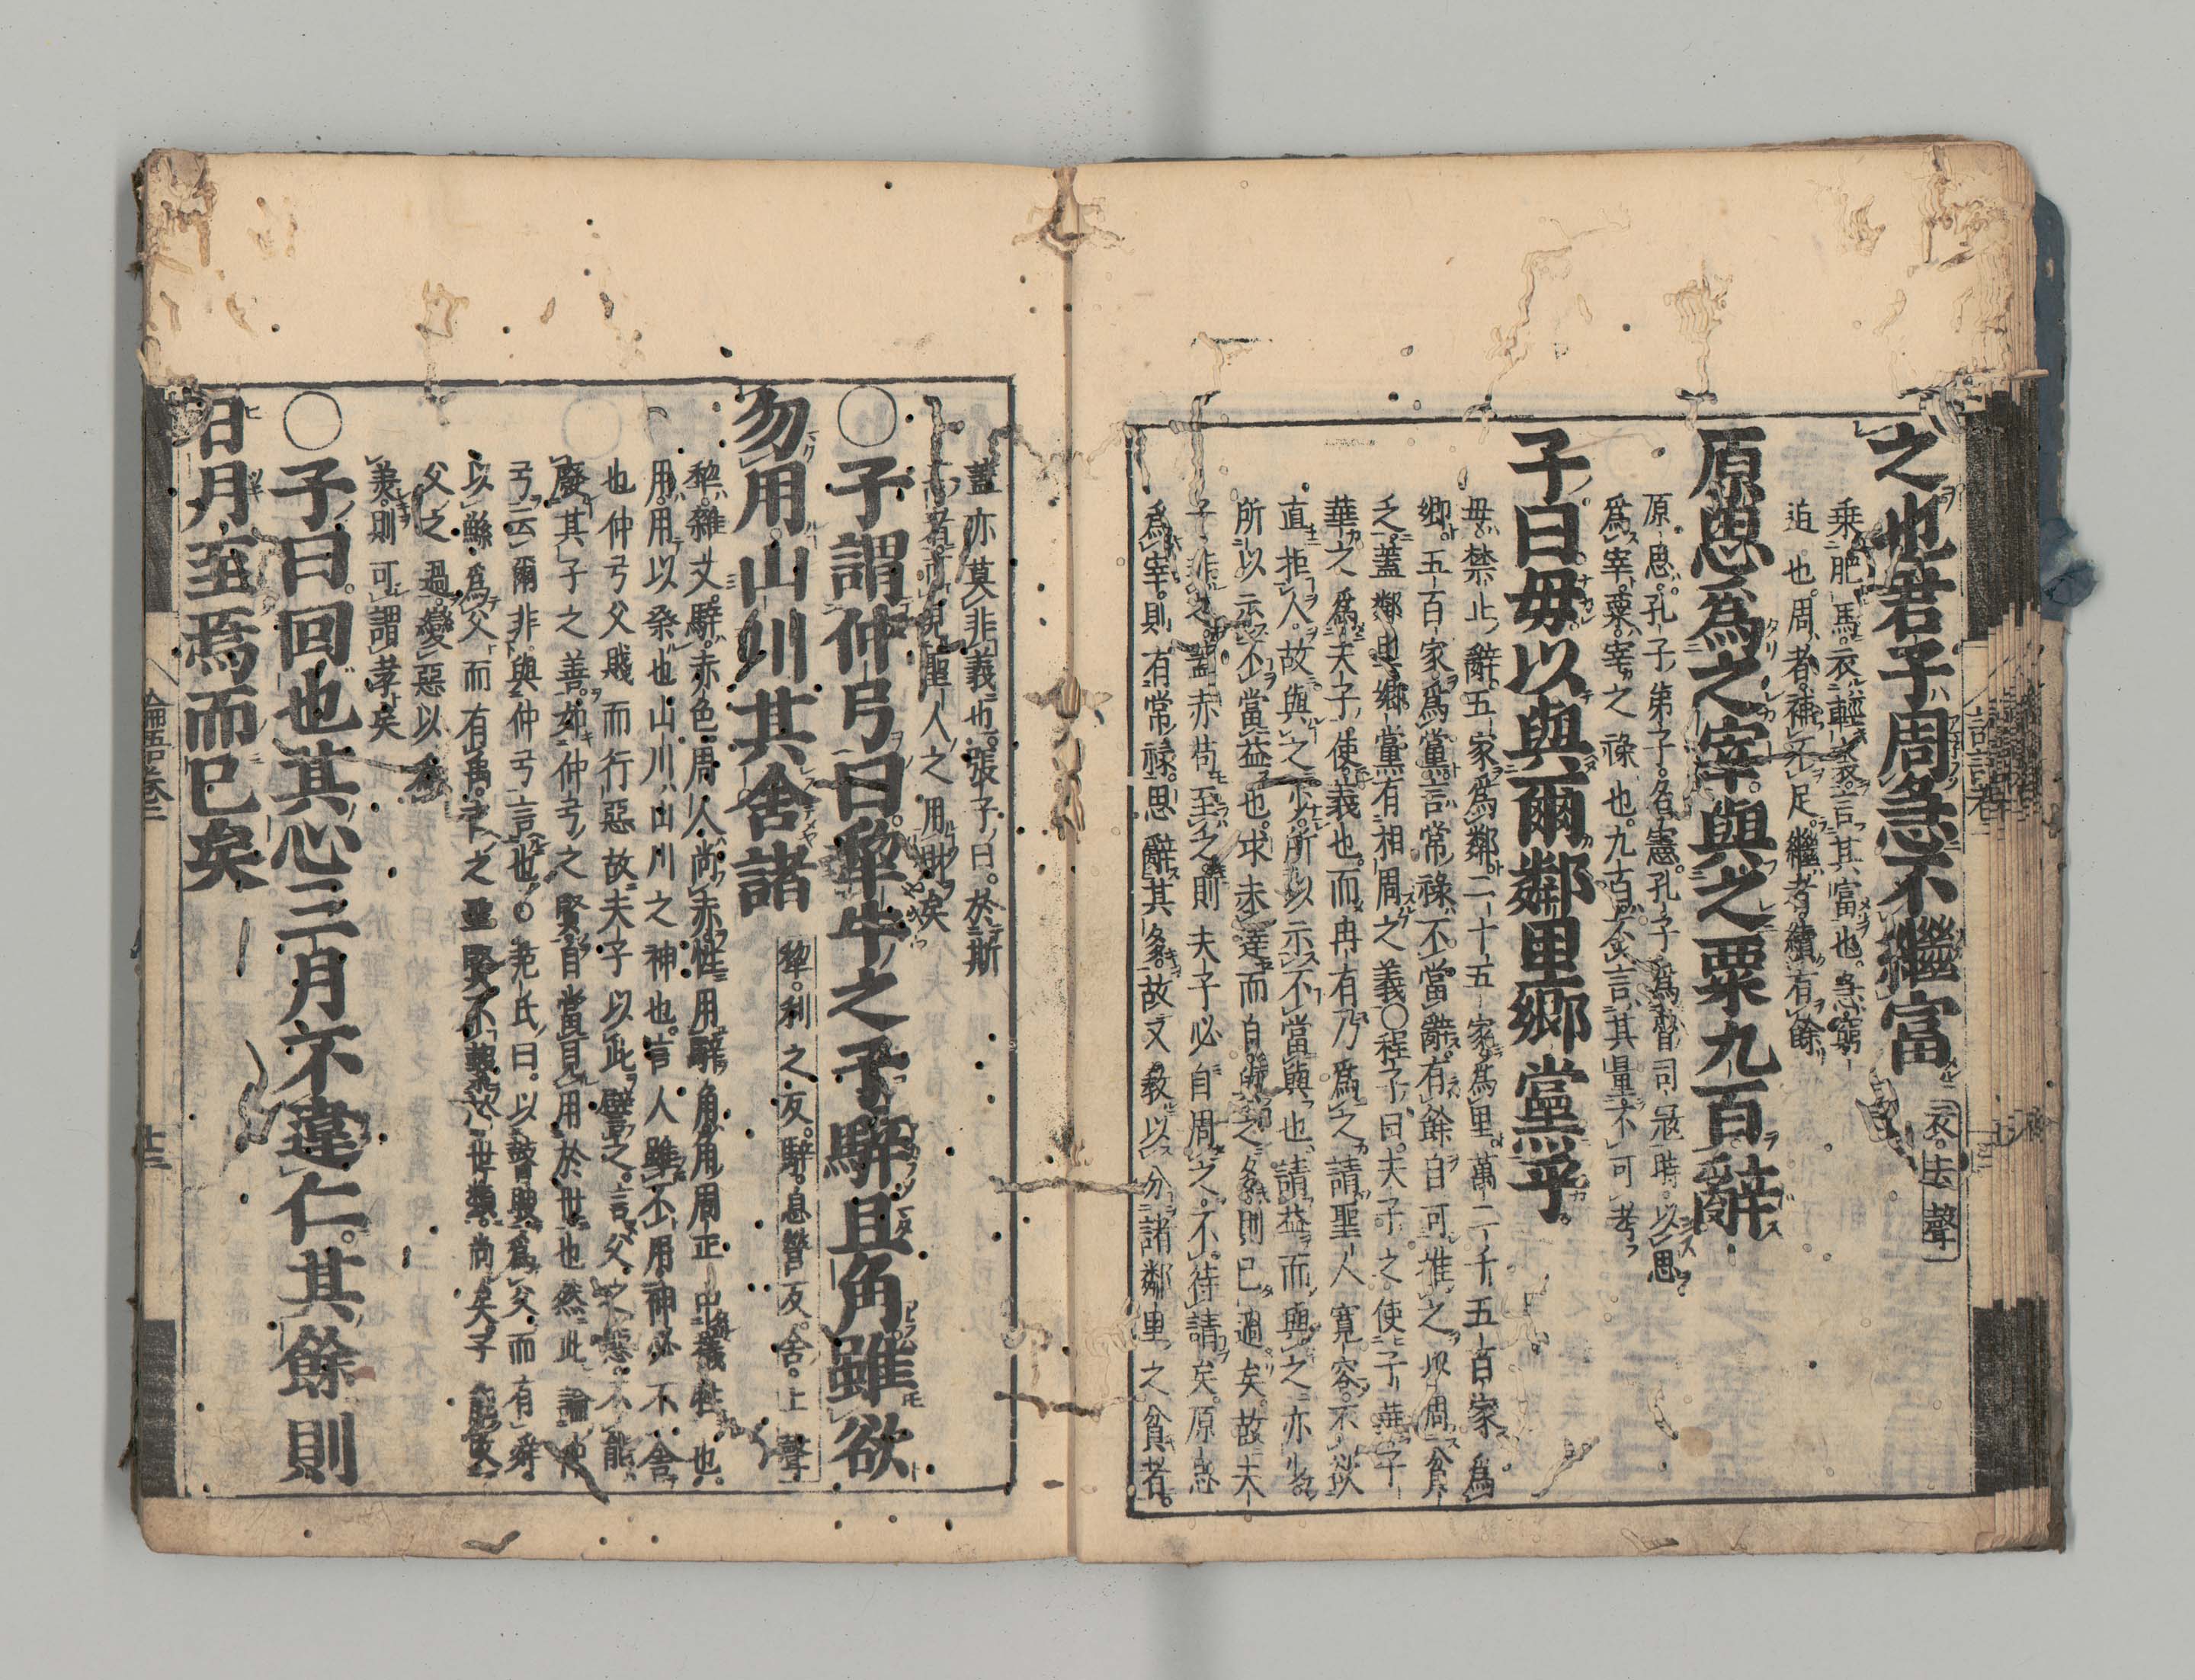 之也君子周急不繼富 衣去聲
乘肥馬衣輕裘言其富也急窮
迫也周者補不足繼者續有餘
原思爲之宰與之粟九百辭
原思孔子弟子名憲孔子爲魯司冦時以思
爲宰粟宰之祿也九百不言其量不可考
子曰毋以與爾鄰里郷黨乎
毋禁止辭五家爲鄰二十五家爲里萬二千五百家爲
郷五百家爲黨言常祿不當辭有餘自可推之以周貧
乏蓋鄰里郷黨有相周之義○程子曰夫子之使子華子
華之爲夫子使義也而冉有乃爲之請聖人寬容不欲
直拒人故與之少所以示不當與也請益而與之亦少
所以示不當益也求未達而自與之多則已過矣故夫
子非之蓋赤苟至乏則夫子必自周之不待請矣原思
爲宰則有常祿思辭其多故又敎以分諸鄰里之貧者
蓋亦莫非義也張子曰於斯
二者可見聖人之用財矣
○子謂仲弓曰犂牛之子騂且角雖欲
勿用山川其舍諸 犂利之反騂息營反舍上聲
犂雜文騂赤色周人尚赤牲用騂角角周正中犧牲也
用用以祭也山川山川之神也言人雖不用神必不舍
也仲弓父賤而行惡故夫子以此譬之言父之惡不能
廢其子之善如仲弓之賢自當見用於世也然此論仲
弓云爾非與仲弓言也○范氏曰以瞽瞍爲父而有舜
以鯀爲父而有禹古之聖賢不繫於世類尚矣子能改
父之過變惡以
美則可謂孝矣
○子曰回也其心三月不違仁其餘則
日月至焉而已矣
論語卷三
十三